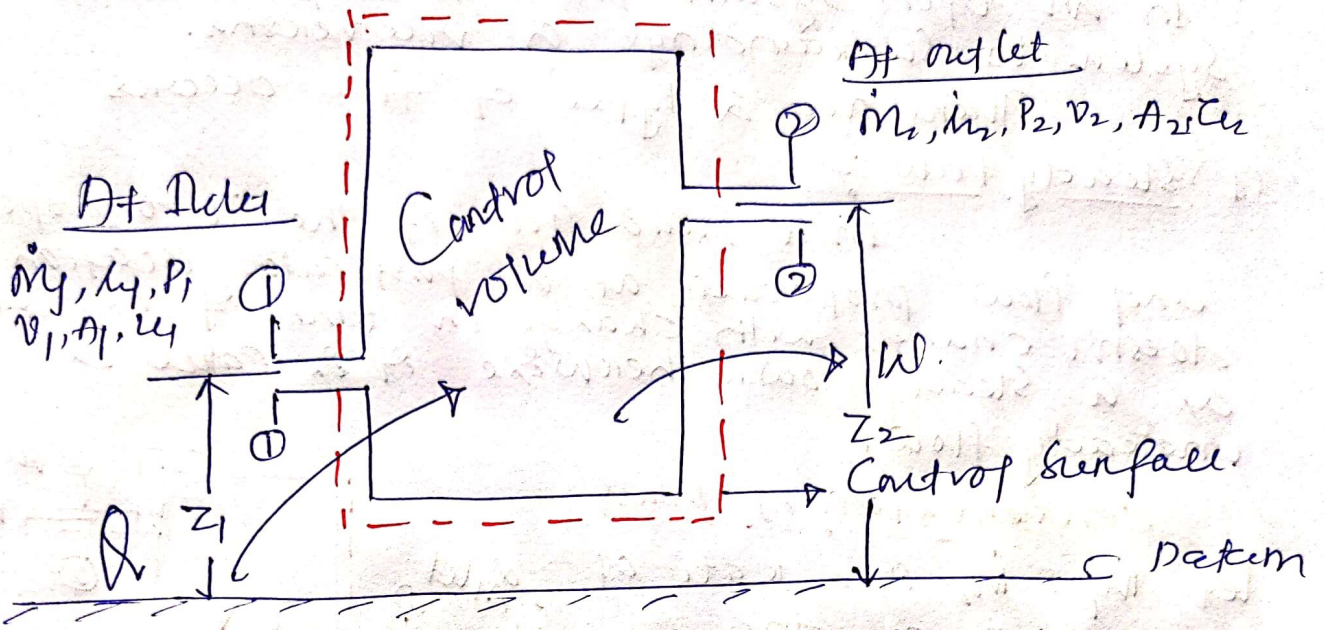 At outlet
ṁ₂, h₂, P₂, v₂, A₂, u₂
At Inlet
ṁ₁, h₁, P₁
v₁, A₁, u₁
①
①
Control
volume
②
②
W.
Z₂
Control Surface.
Q
Z₁
Datum